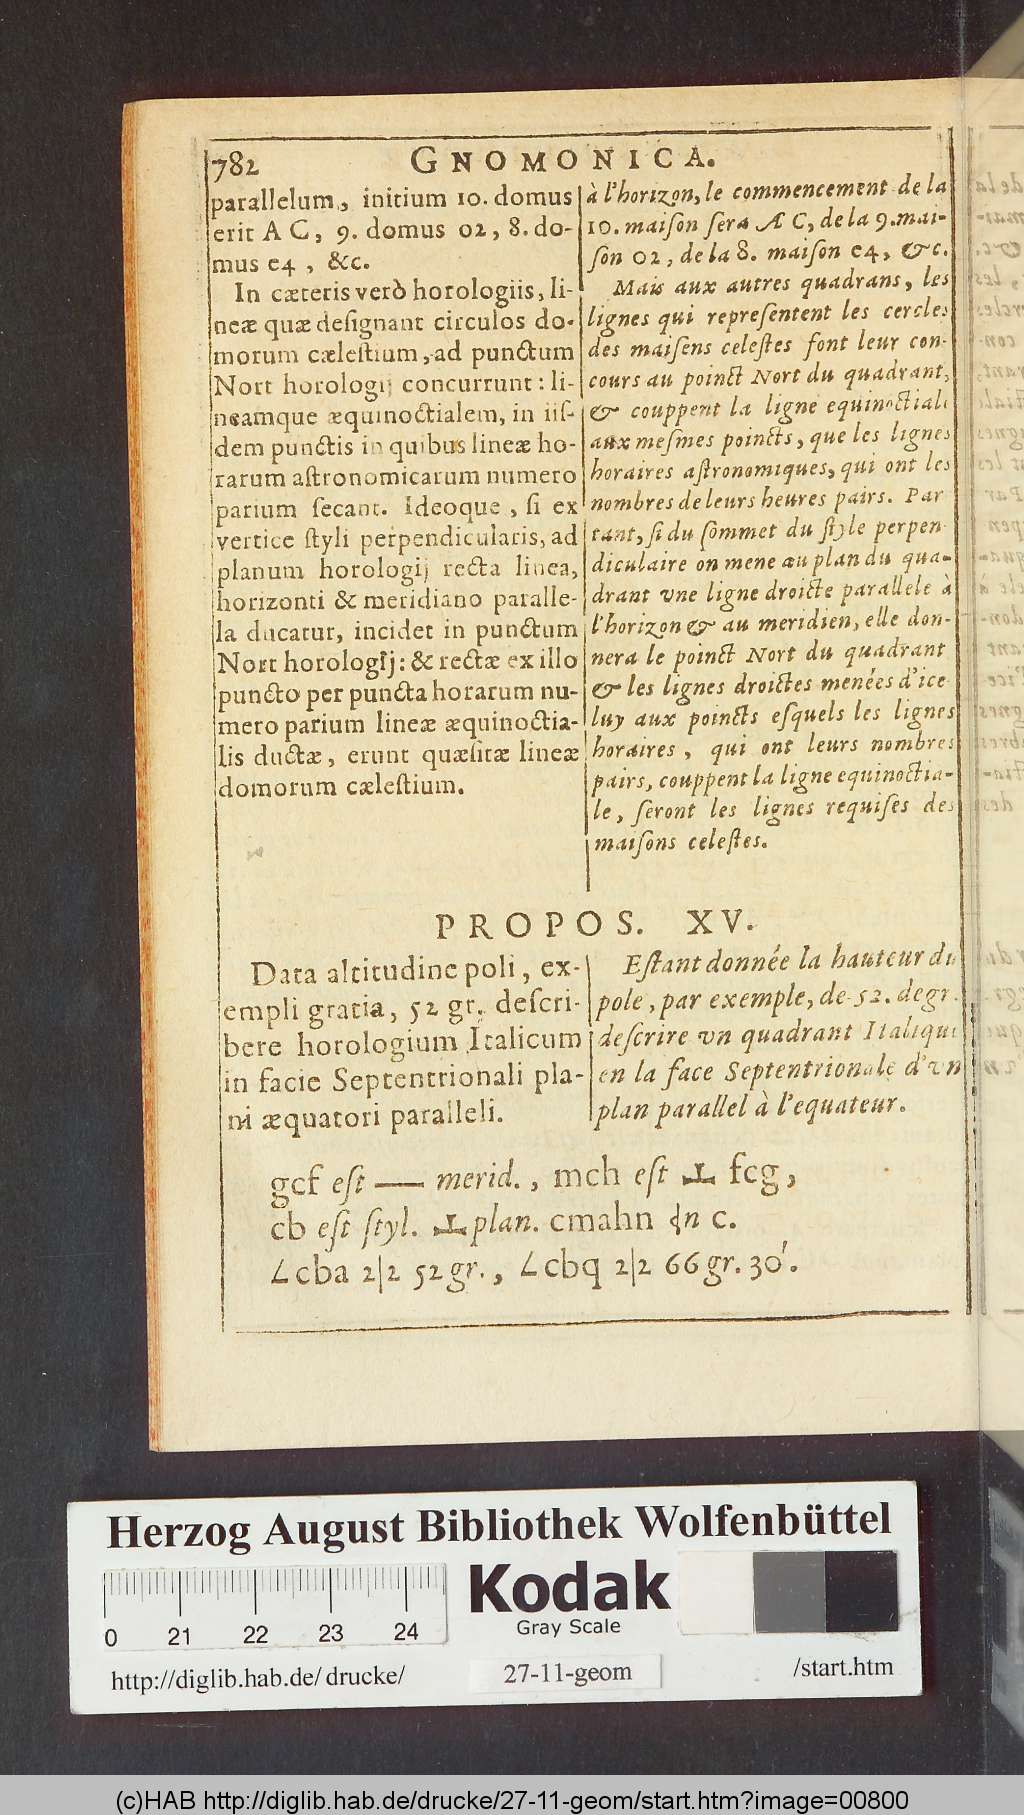 782
GNOMONICA.
parallelum, initium 10. domus
erit A C, 9. domus 02, 8. do-
mus e4, &c.
In cæteris verò horologiis, li-
neæ quæ deſignant circulos do-
morum cæleſtium, ad punctum
Nort horologij concurrunt: li-
neamque æquinoctialem, in iiſ-
dem punctis in quibus lineæ ho-
rarum aſtronomicarum numero
parium ſecant. Ideoque, ſi ex
vertice ſtyli perpendicularis, ad
planum horologij recta linea,
horizonti & meridiano paralle-
la ducatur, incidet in punctum
Nort horologij: & rectæ ex illo
puncto per puncta horarum nu-
mero parium lineæ æquinoctia-
lis ductæ, erunt quæſitæ lineæ
domorum cæleſtium.
à l'horizon, le commencement de la
10. maiſon ſera A C, de la 9. mai-
ſon 02, de la 8. maiſon e4, &c.
Mais aux autres quadrans, les
lignes qui repreſentent les cercles
des maiſens celeſtes font leur con-
cours au poinct Nort du quadrant,
& couppent la ligne equinoctiale
aux meſmes poincts, que les lignes
horaires aſtronomiques, qui ont les
nombres de leurs heures pairs. Par
tant, ſi du ſommet du ſtyle perpen-
diculaire on mene au plan du qua-
drant vne ligne droicte parallele à
l'horizon & au meridien, elle don-
nera le poinct Nort du quadrant
& les lignes droictes menées d'ice-
luy aux poincts eſquels les lignes
horaires, qui ont leurs nombres
pairs, couppent la ligne equinoctia-
le, ſeront les lignes requiſes des
maiſons celeſtes.
PROPOS. XV.
Data altitudine poli, ex-
empli gratia, 52 gr. deſcri-
bere horologium Italicum
in facie Septentrionali pla-
ni æquatori paralleli.
Eſtant donnée la hauteur du
pole, par exemple, de 52. degr.
deſcrire vn quadrant Italique
en la face Septentrionale d'vn
plan parallel à l'equateur.
gcf eſt — merid., mch eſt ⊥ fcg,
cb eſt ſtyl. ⊥ plan. cmahn ɖn c.
∠cba 2|2 52 gr., ∠cbq 2|2 66 gr. 30'.
Herzog August Bibliothek Wolfenbüttel
0 21 22 23 24
Kodak
Gray Scale
http://diglib.hab.de/drucke/
27-11-geom
/start.htm
(c)HAB http://diglib.hab.de/drucke/27-11-geom/start.htm?image=00800